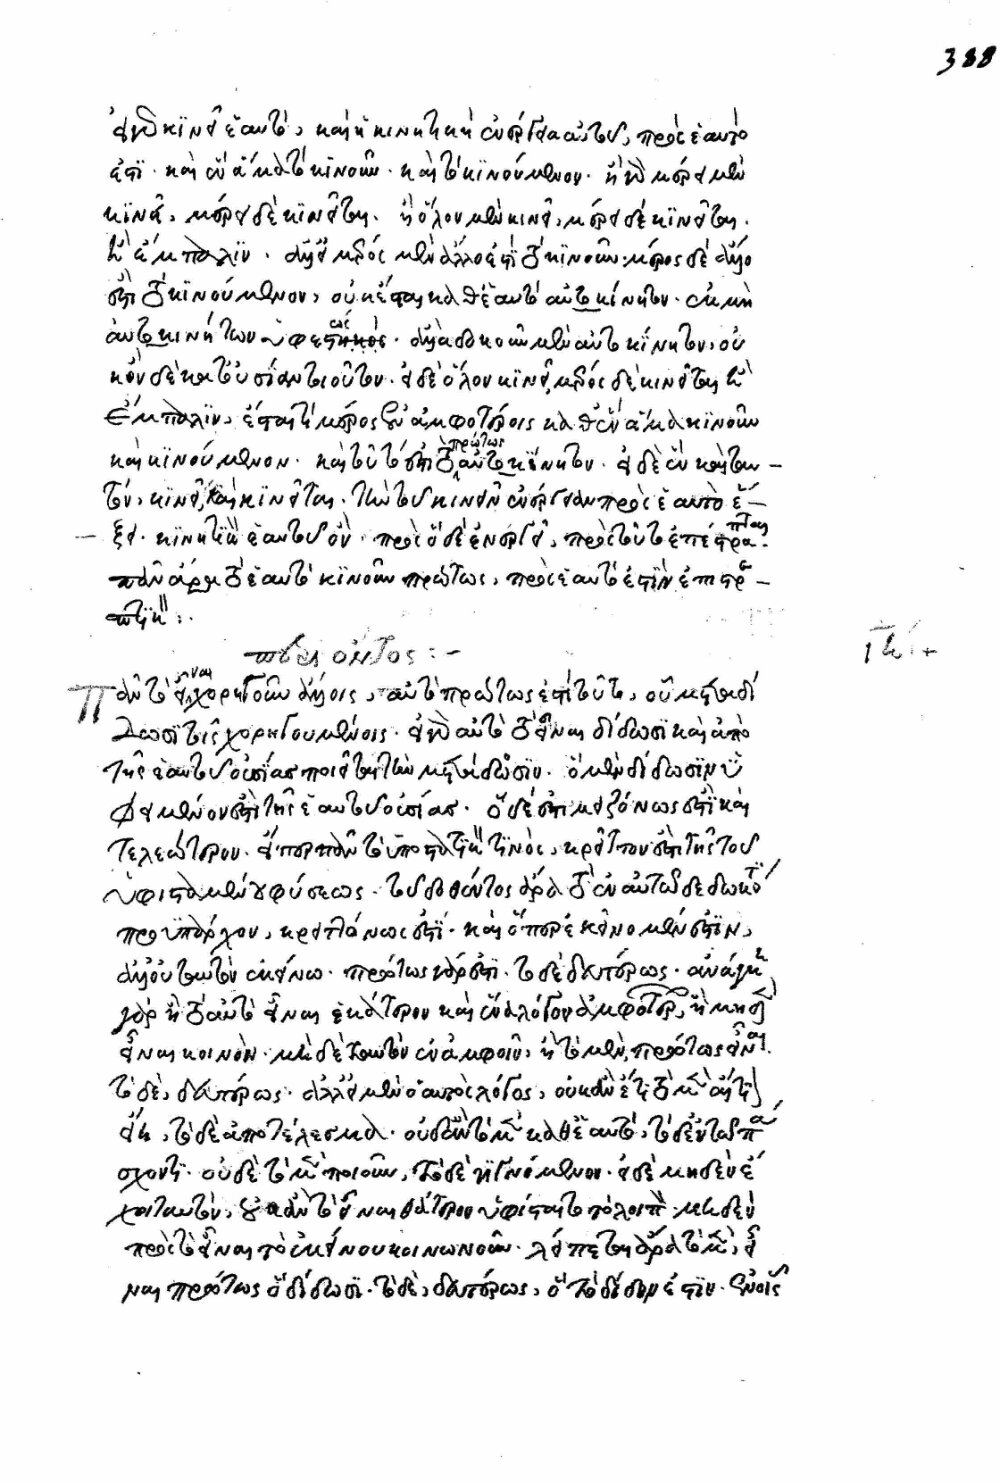 388
εἰ γὰρ κινεῖ ἑαυτό, καὶ ἡ κινητικὴ ἐνέργεια αὐτοῦ, πρὸς ἑαυτό
ἐστι· καὶ ἓν ἅμα τὸ κινοῦν· καὶ τὸ κινούμενον· ἢ γὰρ μέρει μὲν
κινεῖ, μέρει δὲ κινεῖται· ἢ ὅλον μὲν κινεῖ, μέρει δὲ κινεῖται·
ἢ ἔμπαλιν· ἀλλ' εἰ μέρος μὲν ἄλλο ἐστὶ τὸ κινοῦν· μέρος δὲ ἄλλο
ἐστὶ τὸ κινούμενον, οὐκ ἔσται καθ' ἑαυτὸ αὐτοκίνητον· ἐκ μὴ
αὐτοκινήτων ὑφεστηκός· ἀλλὰ δοκοῦν μὲν αὐτοκίνητον, οὐ
κὸν δὲ κατ' οὐσίαν τοιοῦτον· εἰ δὲ ὅλον κινεῖ, μέρος δὲ κινεῖται ἢ
ἔμπαλιν, ἔσται τι μέρος ἐν ἀμφοτέροις καθ' ἓν ἅμα κινοῦν
καὶ κινούμενον· καὶ τοῦτό ἐστι τὸ πρώτως αὐτοκίνητον· εἰ δὲ ἓν καὶ ταυ-
τόν, κινεῖ, καὶ κινεῖται· τὴν τοῦ κινεῖν ἐνέργειαν πρὸς ἑαυτὸ ἕ-
ξει· κινητικὴ ἑαυτοῦ ὄν· πρὸς ὃ δὲ ἐνεργεῖ, πρὸς τοῦτο ἐπέστραπται·
πᾶν ἄρα τὸ ἑαυτὸ κινοῦν πρώτως, πρὸς ἑαυτό ἐστιν ἐπιστρε-
πτικόν:
περὶ ὄντος:-
Πᾶν τὸ εἶναι χορηγοῦν ἄλλοις, αὐτὸ πρώτως ἐστὶ τοῦτο, οὗ μεταδί
δωσι τοῖς χορηγουμένοις· εἰ γὰρ αὐτὸ τὸ εἶναι δίδωσι καὶ ἀπὸ
τῆς ἑαυτοῦ οὐσίας ποιεῖται τὴν μετάδοσιν· ὃ μὲν δίδωσιν ὑ
φειμένον ἐστὶ τῆς ἑαυτοῦ οὐσίας· ὃ δέ ἐστι μειζόνως ἐστὶ καὶ
τελεώτερον· εἴπερ πᾶν τὸ ὑποστατικόν τινος, κρεῖττόν ἐστι τῆς τοῦ
ὑφισταμένου φύσεως· τοῦ δοθέντος ἄρα τὸ ἐν αὐτῷ δεδωκότι
προϋπάρχον, κρειττόνως ἐστί· καὶ ὅπερ ἐκεῖνο μέν ἐστιν,
ἀλλ' οὐ ταυτὸν ἐκείνῳ· πρώτως γὰρ ἐστι· τὸ δὲ δευτέρως· ἀνάγκη
γὰρ ἢ τὸ αὐτὸ εἶναι ἑκάτερον καὶ ἕνα λόγον ἀμφοτέρων, ἢ μηδὲν
εἶναι κοινὸν μηδὲ ταυτὸν ἐν ἀμφοῖν, ἢ τὸ μὲν, πρώτως εἶναι·
τὸ δὲ, δευτέρως· ἀλλ' εἰ μὲν ὁ αὐτὸς λόγος, οὐκ ἂν ἔτι τὸ μὲν αἴτιον
εἴη, τὸ δὲ ἀποτέλεσμα· οὐδ' ἂν τὸ μὲν καθ' ἑαυτό, τὸ δ' ἐν τῷ πα
σχόντι· οὐδὲ τὸ μὲν ποιοῦν, τὸ δὲ γιγνόμενον· εἰ δὲ μηδὲν ἔ
χοι ταυτόν, οὐκ ἂν τῷ εἶναι θάτερον ὑφίστατο τὸ λοιπὸν μηδὲν
πρὸς τὸ εἶναι τὸ ἐκείνου κοινωνοῦν· λείπεται ἄρα τὸ μὲν, εἶ
ναι πρώτως ὃ δίδωσι· τὸ δὲ, δευτέρως, ὃ τὸ διδόν ἐστιν· ἐν οἷς